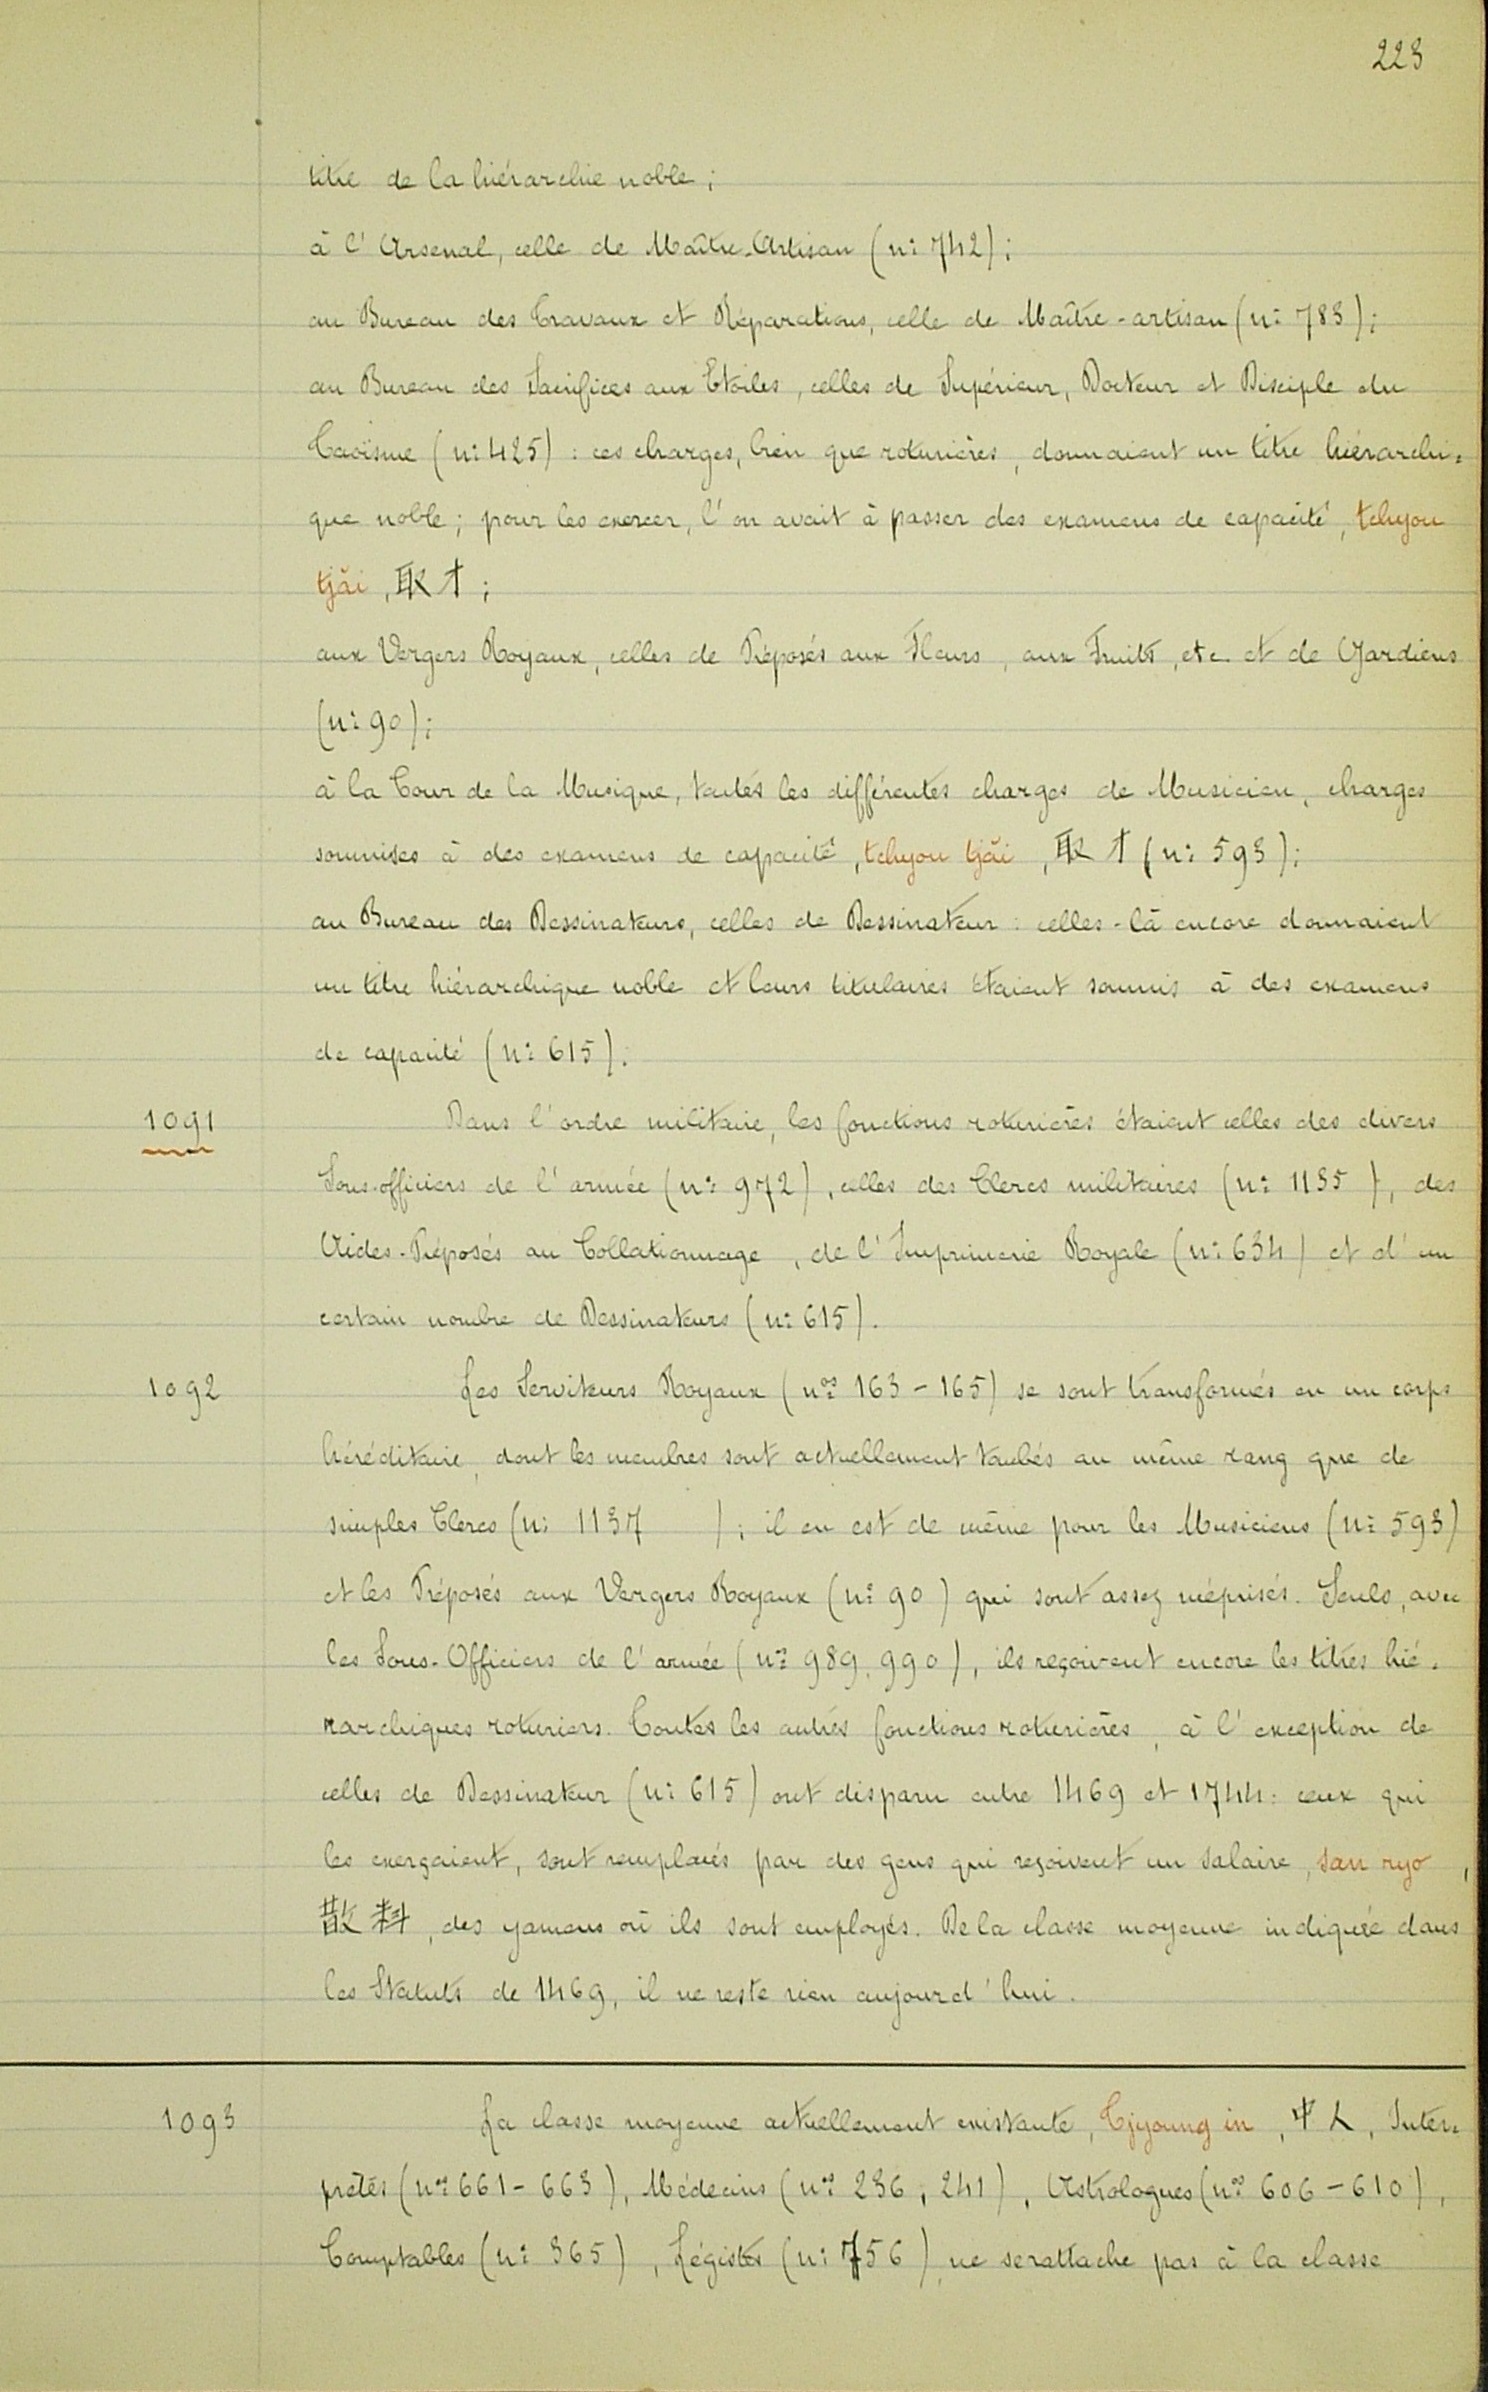 223
titre de la hiérarchie noble ;
à l'Arsenal, celle de Maître-Artisan (nº 742) ;
au Bureau des Travaux et Réparations, celle de Maître-artisan (nº 783) ;
au Bureau des Sacrifices aux Etoiles, celles de Supérieur, Docteur et Disciple du
Taoïsme (nº 425) : ces charges, bien que roturières, donnaient un titre hiérarchi=
que noble ; pour les exercer, l'on avait à passer des examens de capacité, tchyou
tjăi, 取才 ;
aux Vergers Royaux, celles de Préposés aux Fleurs, aux Fruits, etc. et de Gardiens
(nº 90) ;
à la Cour de la Musique, toutes les différentes charges de Musicien, charges
soumises à des examens de capacité, tchyou tjăi, 取才 (nº 593) ;
au Bureau des Dessinateurs, celles de Dessinateur : celles-là encore donnaient
un titre hiérarchique noble et leurs titulaires étaient soumis à des examens
de capacité (nº 615).
1091 Dans l'ordre militaire, les fonctions roturières étaient celles des divers
Sous-officiers de l'armée (nº 972), celles des Clercs militaires (nº 1135 ), des
Aides-Préposés au Collationnage, de l'Imprimerie Royale (nº 634) et d'un
certain nombre de Dessinateurs (nº 615).
1092 Les Serviteurs Royaux (nos 163-165) se sont transformés en un corps
héréditaire, dont les membres sont actuellement tombés au même rang que de
simples Clercs (nº 1137 ) ; il en est de même pour les Musiciens (nº 593)
et les Préposés aux Vergers Royaux (nº 90) qui sont assez méprisés. Seuls, avec
les Sous-Officiers de l'armée (nos 989, 990), ils reçoivent encore les titres hié=
rarchiques roturiers. Toutes les autres fonctions roturières, à l'exception de
celles de Dessinateur (nº 615) ont disparu entre 1469 et 1744 : ceux qui
les exerçaient, sont remplacés par des gens qui reçoivent un salaire, san ryo,
散料, des yamens où ils sont employés. De la classe moyenne indiquée dans
les Statuts de 1469, il ne reste rien aujourd'hui.
1093 La classe moyenne actuellement existante, Tjyoung in, 中人, Inter=
prètes (nos 661-663), Médecins (nos 236, 241), Astrologues (nos 606-610),
Comptables (nº 365), Légistes (nº 756), ne se rattache pas à la classe